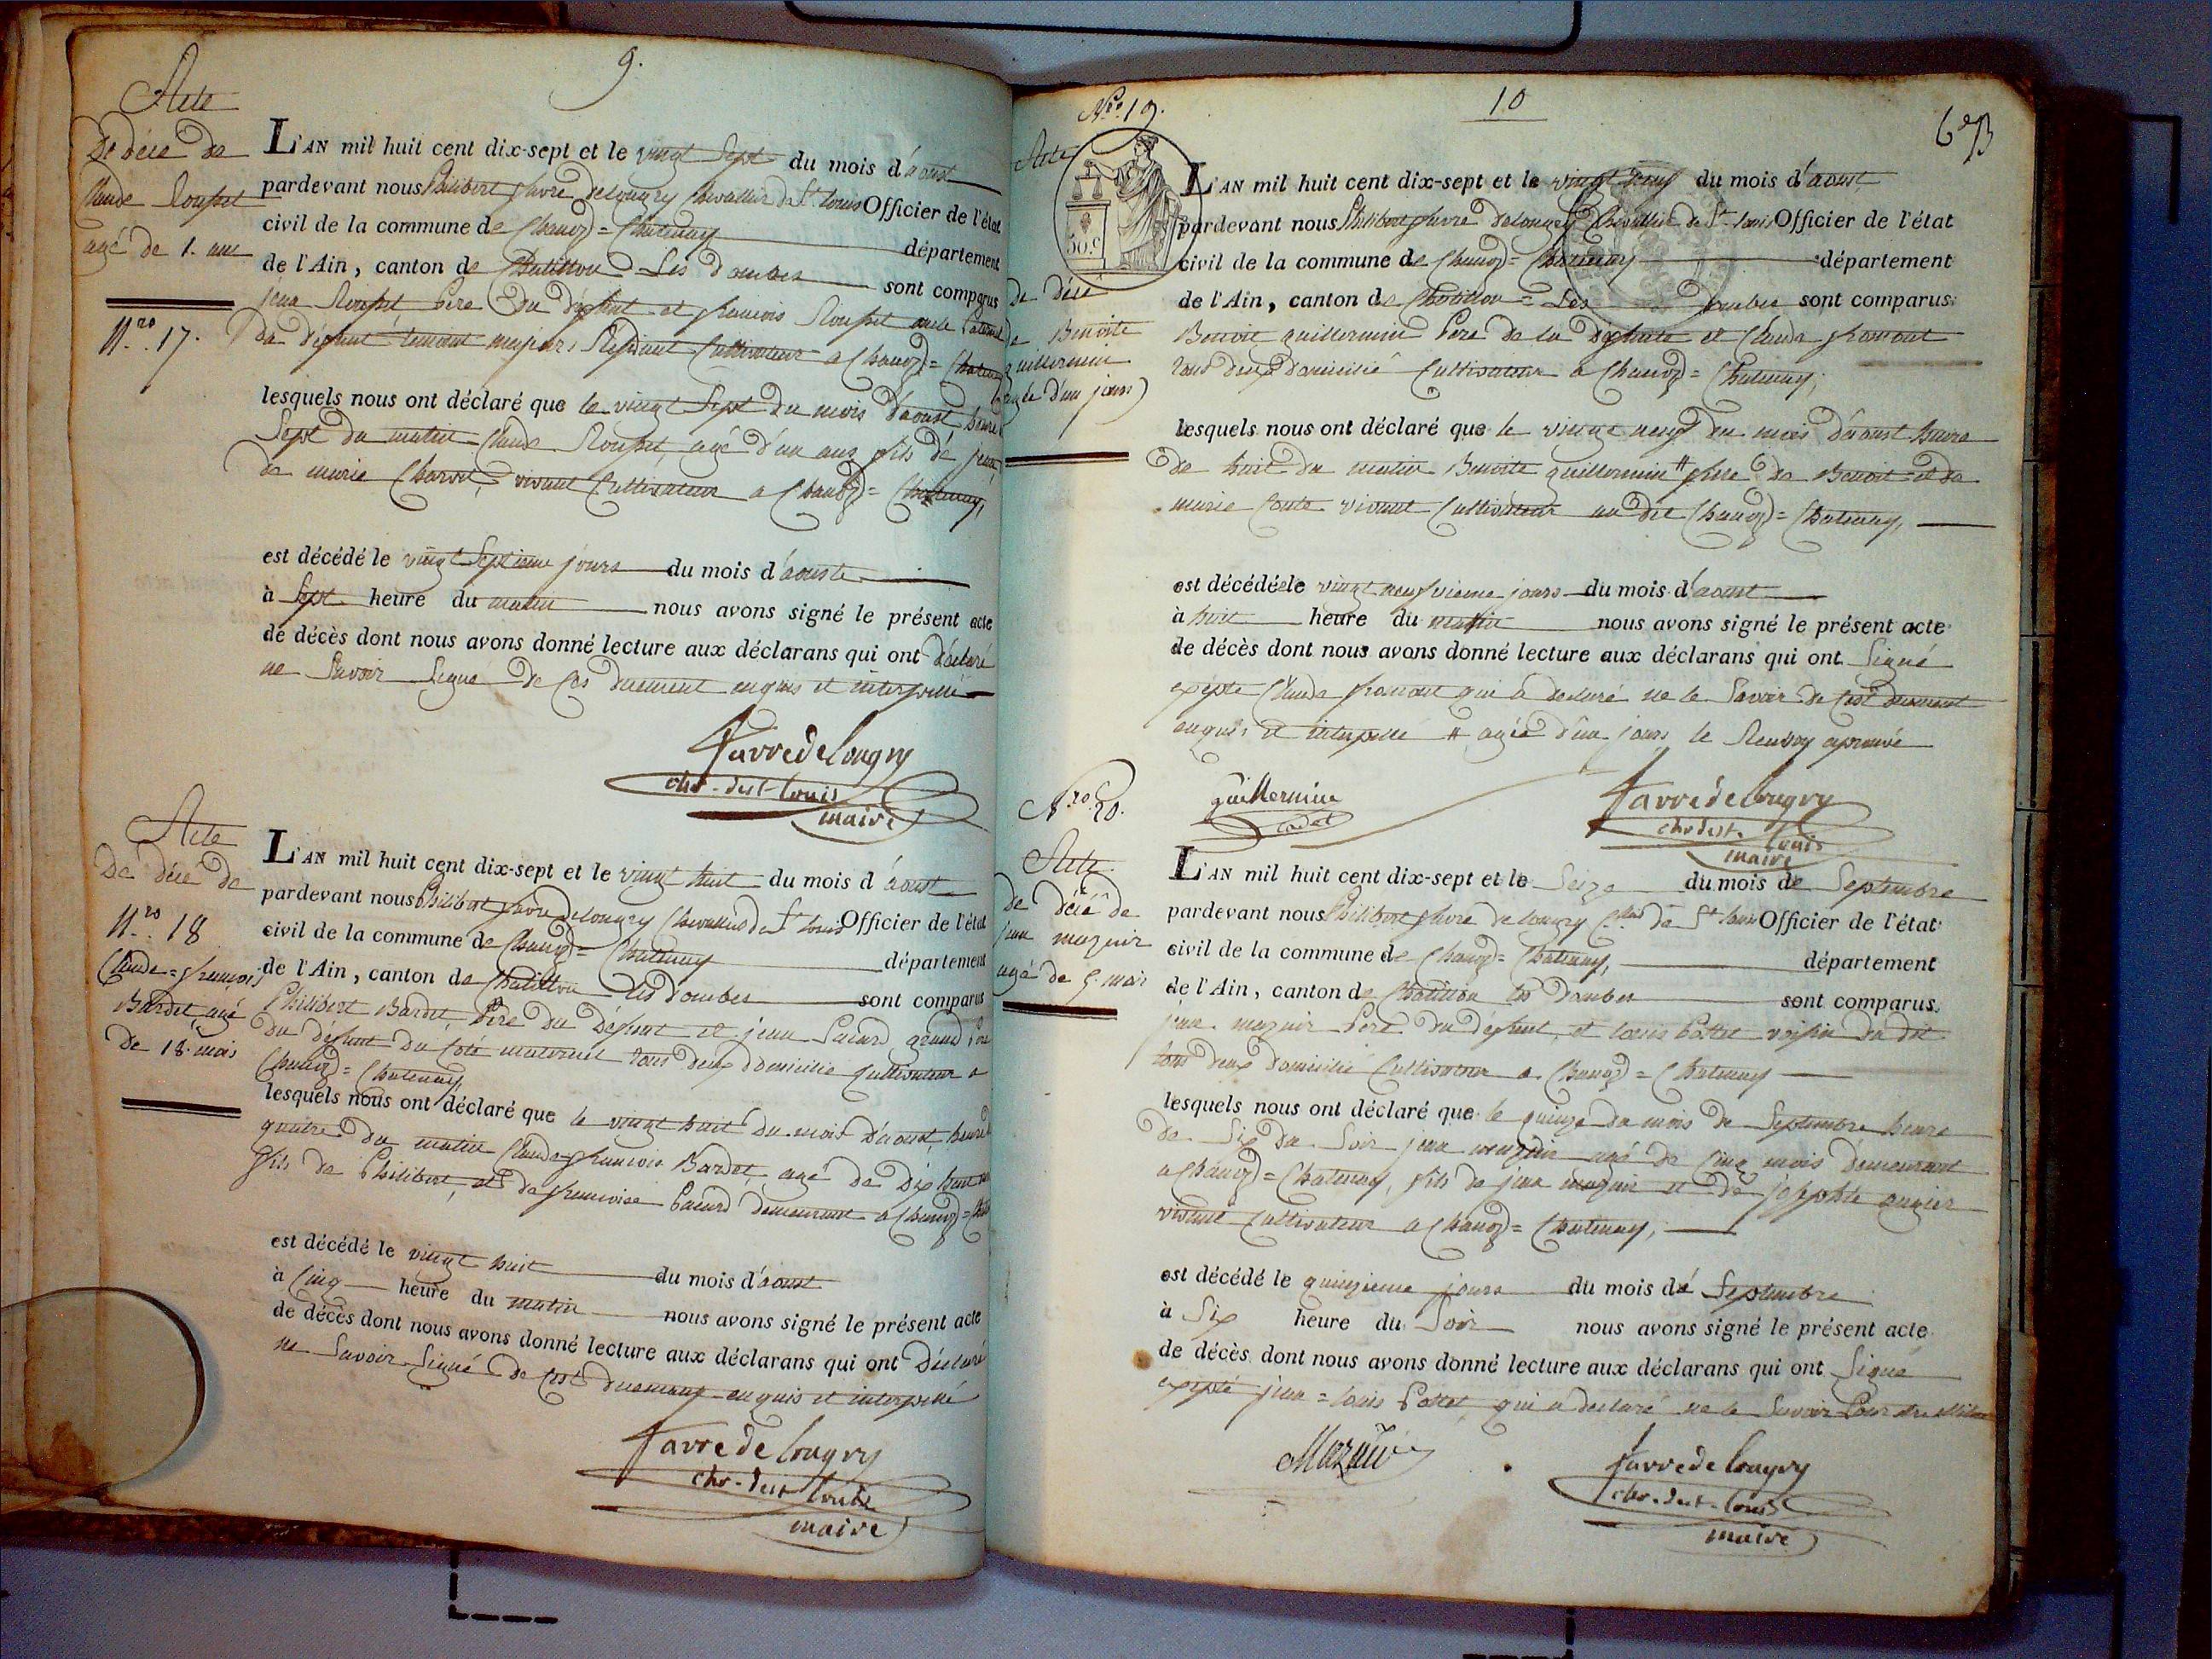 9.
Acte
De décè de
Claude Roupet
agé de 1. ans
Nro. 17.
L'AN mil huit cent dix-sept et le vingt Sept du mois d'aoust
pardevant nous Philibert favre delongry Chevallier de St Louis Officier de l'état
civil de la commune de Chanoz = Chatenay département
de l'Ain, canton de Chatillon Les Dombes sont comparus
jean Roupet Pere du défunt et francois Roupet oncle Paternel
du défunt temoint majeurs Résidant Cultivateur a Chanoz = Chatenay
lesquels nous ont déclaré que le vingt Sept du mois d'aoust heure
Sept du matin Claude Roupet, agé d'un ans fils de jean
de marie Charvet, vivant Cultivateur a Chanoz = Chatenay,
est décédé le vingt Septieme jours du mois d'aouste
à Sept heure du matin nous avons signé le présent acte
de décès dont nous avons donné lecture aux déclarans qui ont déclaré
ne Savoir Signé de Ces duement enquis et interpellé
favre de longry
chr. de st. Louis
maire
Acte
De décè de
Nro. 18
Claude = francois
Bardet, agé
de 18. mois
L'AN mil huit cent dix-sept et le vingt huit du mois d'aoust
pardevant nous Philibert favre Delongry Chevallier de St Louis Officier de l'état
civil de la commune de Chanoz = Chatenay département
de l'Ain, canton de Chatillon les Dombes sont comparus
Philibert Bardet, Pere du Défunt et jean Pacard grand Pere
du défunt du Coté maternel tous deux domicilié Cultivateur a
Chanoz = Chatenay,
lesquels nous ont déclaré que le vingt huit du mois d'aoust, heure
quatre du matin Claude = francois Bardet, agé de Dix huit
fils de Philibert, et de francoise Pacard demeurant a Chanoz =
est décédé le vingt huit du mois d'aoust
à Cinq heure du matin nous avons signé le présent acte
de décès dont nous avons donné lecture aux déclarans qui ont Déclaré
ne Savoir Signé de Cest duement enquis et interpellé
favre de longry
chr. de st Louis
maire
10
6e B
Nro. 19.
Acte
50. C.
de décè
de Benoite
guillermin
agée d'un jours
L'AN mil huit cent dix-sept et le vingt neuf du mois d'aoust,
pardevant nous Philibert favre delongry Chevallier de St Louis Officier de l'état
civil de la commune de Chanoz = Chatenay département
de l'Ain, canton de Chatillon = Les Dombes sont comparus
Benoit guillermin Pere de la défunte et Claude framont
tous deux domicilié Cultivateur a Chanoz = Chatenay,
lesquels nous ont déclaré que le vingt neuf du mois d'aoust heure
de huit du matin Benoite guillermin # fille de Benoit et de
marie Conte vivant Cultivateur au dit Chanoz = Chatenay,
est décédée le vingt neufvieme jours du mois d'aoust
à huit heure du matin nous avons signé le présent acte
de décès dont nous avons donné lecture aux déclarans qui ont Signé
exepte Claude framont qui a declaré ne le Savoir de Cest duement
enquis et interpellé # agée d'un jours le Renvoy aprouvé
guillermin
cadet
favre de longry
chr de st. Louis
maire
Nro. 20.
Acte
de décè de
jean mazuir
agé de 5. mois
L'AN mil huit cent dix-sept et le Seize du mois de Septembre
pardevant nous Philibert favre de longry Cher de St Louis Officier de l'état
civil de la commune de Chanoz = Chatenay, département
de l'Ain, canton de Chatillon les Dombes sont comparus.
jean mazuir Pere du défunt, et louis Pottet voisin du dit
tous deux domicilié Cultivateur a Chanoz = Chatenay
lesquels nous ont déclaré que le quinze du mois de Septembre heure
de Six du Soir jean mazuir agé de Cinq mois demeurant
a Chanoz = Chatenay, fils de jean mazuir et de josephte augier
vivant Cultivateur a Chanoz = Chatenay,
est décédé le quinzieme jours du mois dé Septembre
à Six heure du Soir nous avons signé le présent acte
de décès dont nous avons donné lecture aux déclarans qui ont Signé
exepté jean = louis Pottet, qui a declaré ne le Savoir
Mazuir
favre de longry
chr. de st. Louis
maire